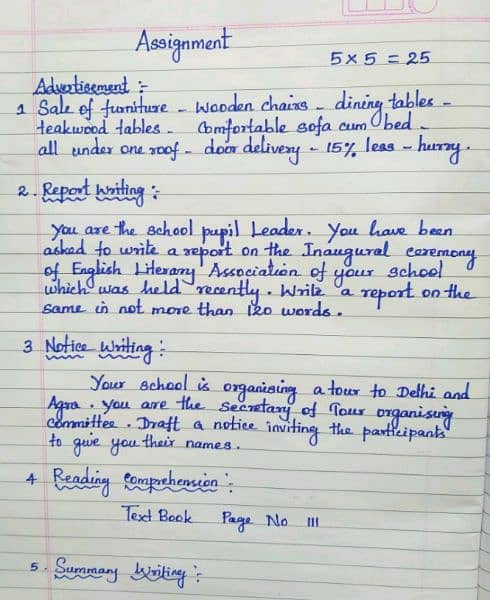 Assignment
5 x 5 = 25
Advertisement :-
1 Sale of furniture - Wooden chairs - dining tables -
teakwood tables - Comfortable sofa cum bed -
all under one roof - door delivery - 15% less - hurry.
2. Report Writing :-
You are the school pupil Leader. You have been
asked to write a report on the Inaugural ceremony
of English Literary Association of your school
which was held recently. Write a report on the
same in not more than 120 words.
3 Notice Writing :-
Your school is organising a tour to Delhi and
Agra. You are the Secretary of Tour organising
committee. Draft a notice inviting the participants
to give you their names.
4 Reading Comprehension :-
Text Book Page No 111
5. Summary Writing :-